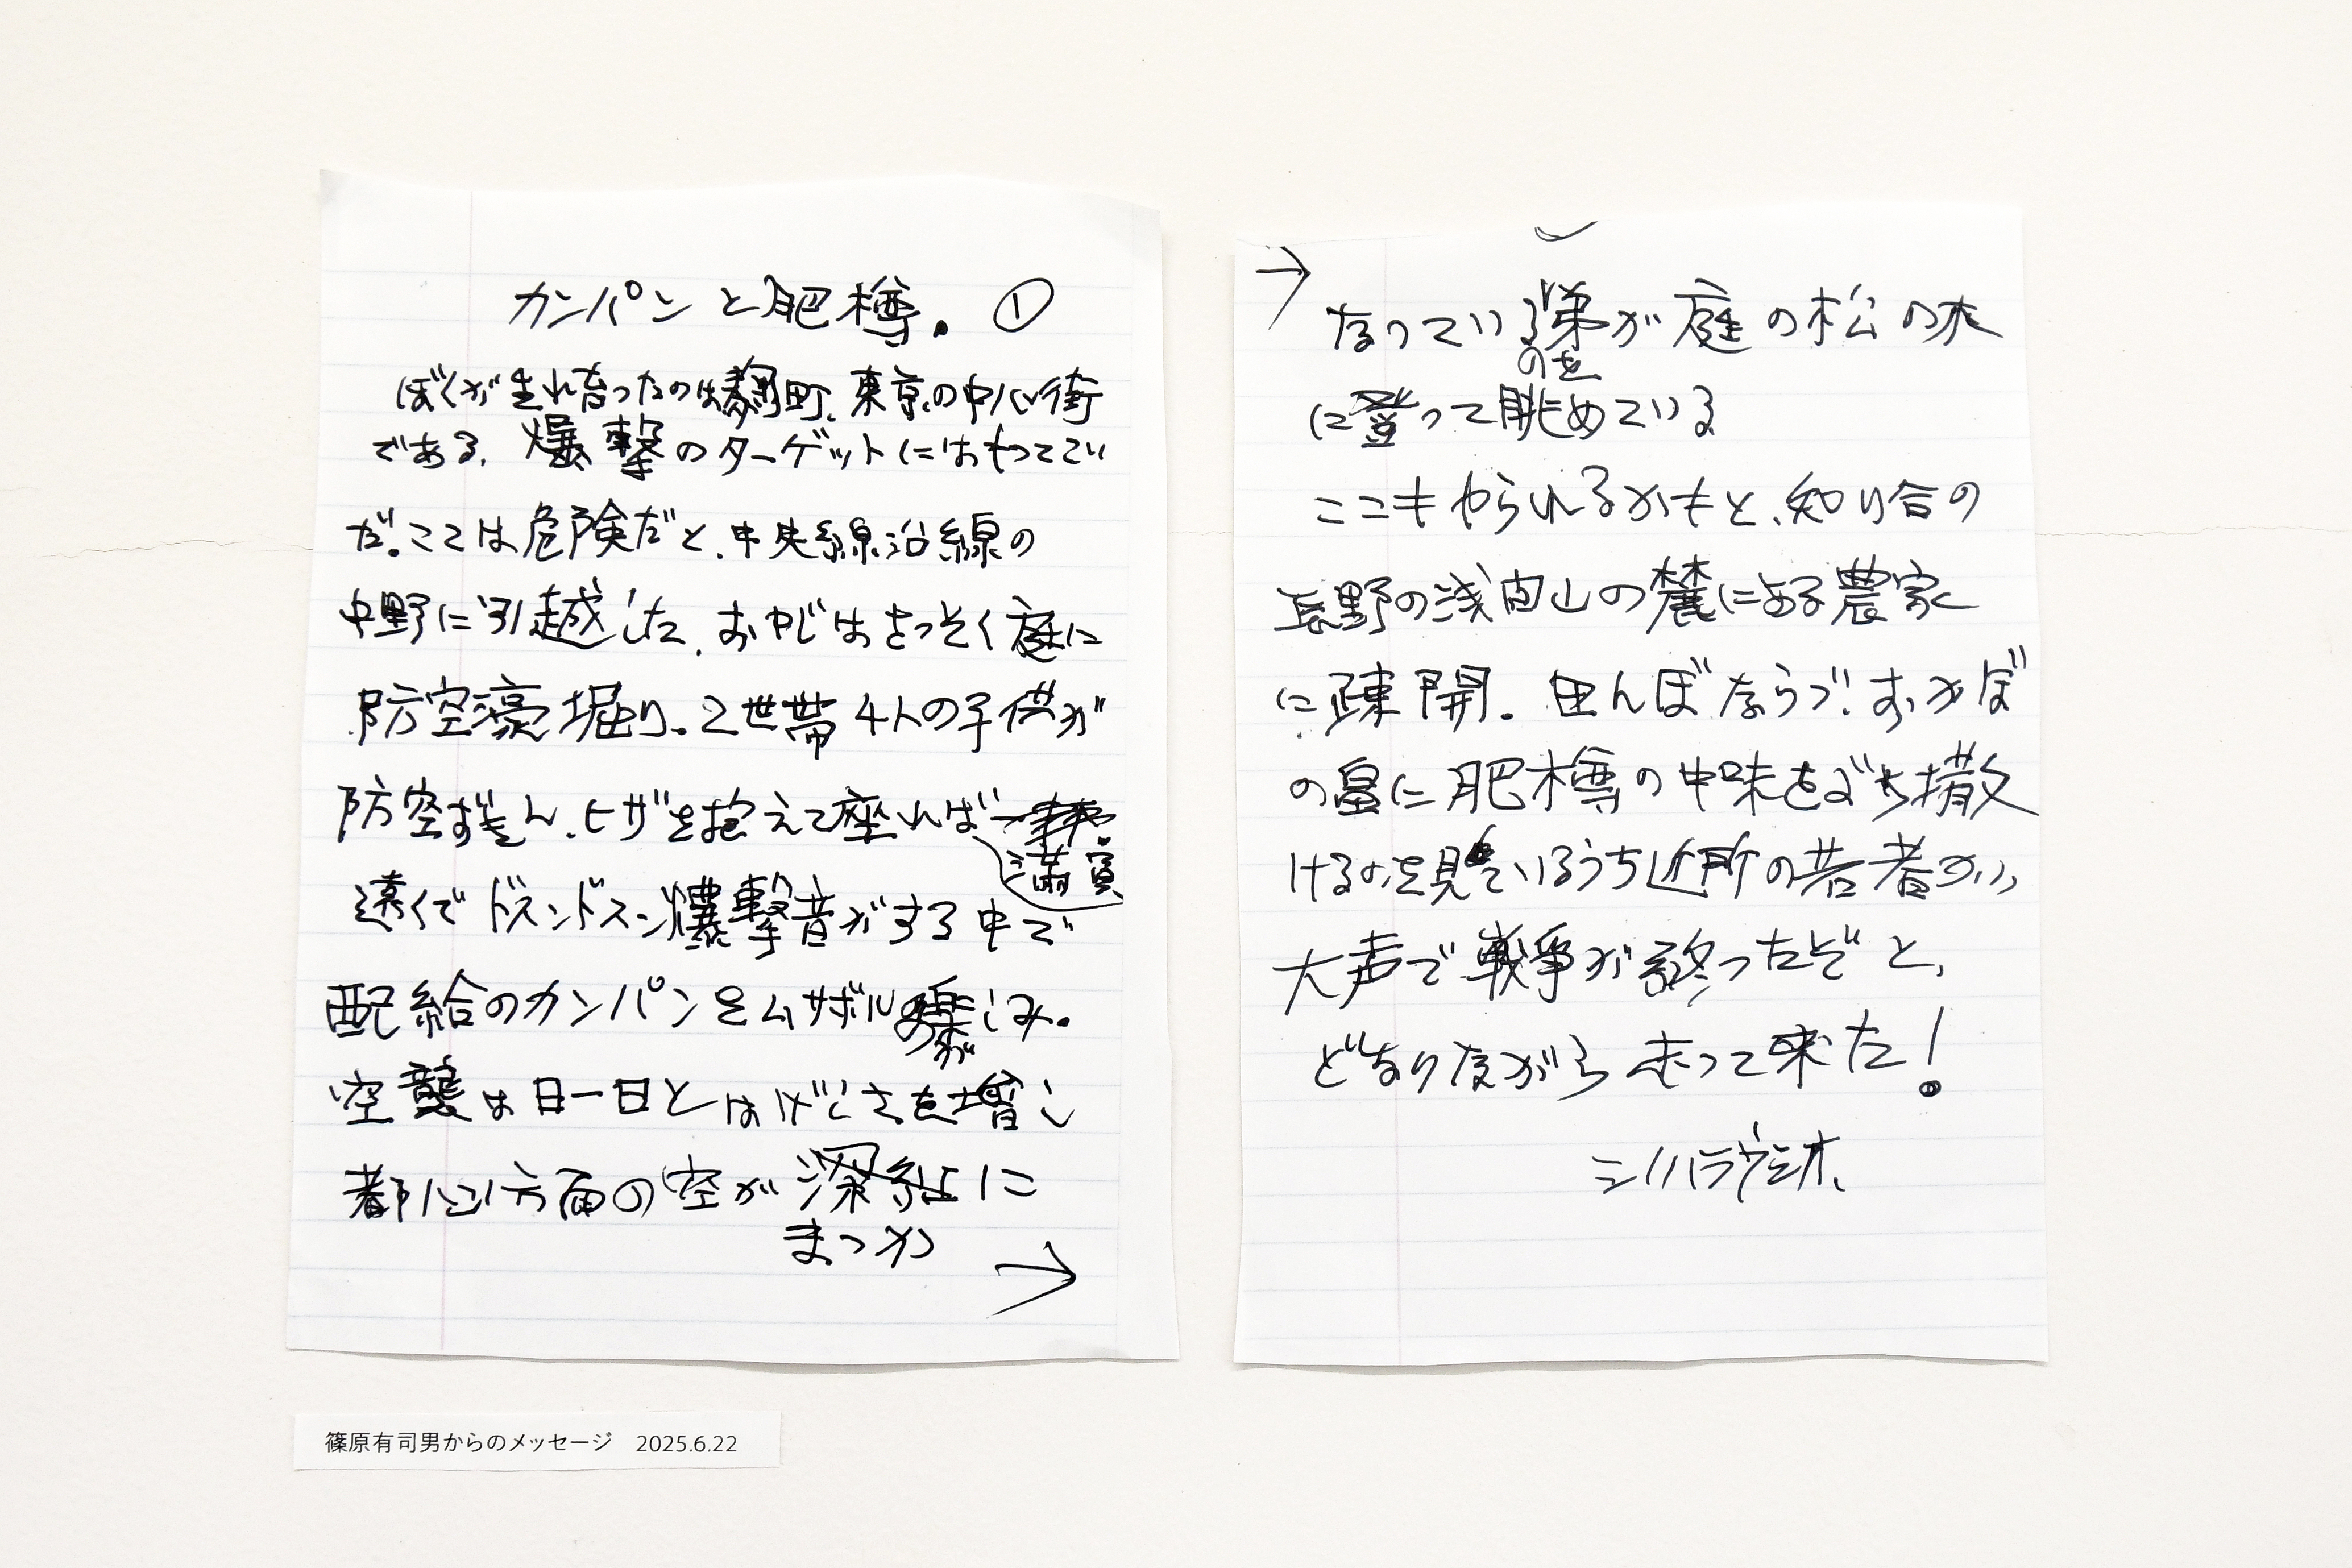 カンパンと肥樽。①
ぼくが生れ育ったのは麹町、東京の中心街
である。爆撃のターゲットにはもってこい
だ。ここは危険だと、中央線沿線の
中野に引越した。おやじはさっそく庭に
防空濠堀り。2世帯4人の子供が
防空ずきん、ヒザを抱えて座れば
満員
遠くでドスンドスン爆撃音がする中で
配給のカンパンをムサボルのが楽しみ。
空襲は日一日とはげしさを増し
都心方面の空が
まっかに
→
→
なっているのを弟が庭の松の木
に登って眺めている
ここもやられるかもと、知り合の
長野の浅間山の麓にある農家
に疎開。田んぼならづ!おかぼ
の畠に肥樽の中味をぶち撒
けるのを見ているうち近所の若者が、
大声で戦争が終ったぞと、
どなりながら走って来た!
シノハラウシオ、
篠原有司男からのメッセージ 2025.6.22